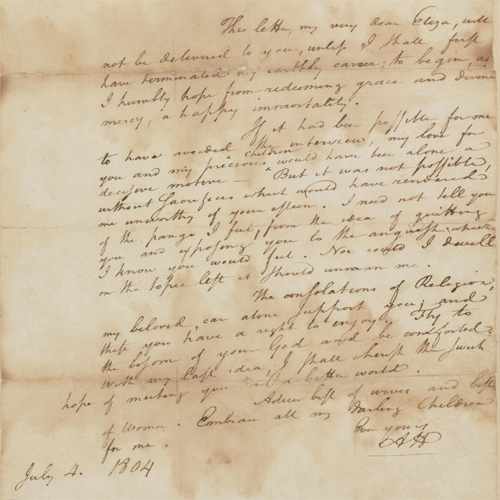 This letter, my very dear Eliza, will
not be delivered to you, unless I shall first
have terminated my earthly career; to begin, as
I humbly hope from redeeming grace and divine
mercy, a happy immortality.
If it had been possible for me
to have avoided the interview, my love for
you and my precious children would have been alone a
decisive motive. But it was not possible,
without sacrifices which would have rendered
me unworthy of your esteem. I need not tell you
of the pangs I feel, from the idea of quitting
you and exposing you to the anguish which
I know you would feel. Nor could I dwell
on the topic lest it should unman me.
The consolations of Religion,
my beloved, can alone support you; and
these you have a right to enjoy. Fly to
the bosom of your God and be comforted.
With my last idea, I shall cherish the sweet
hope of meeting you in a better world.
Adieu best of wives and best
of Women. Embrace all my darling Children
for me. Ever yours
AH
July 4. 1804